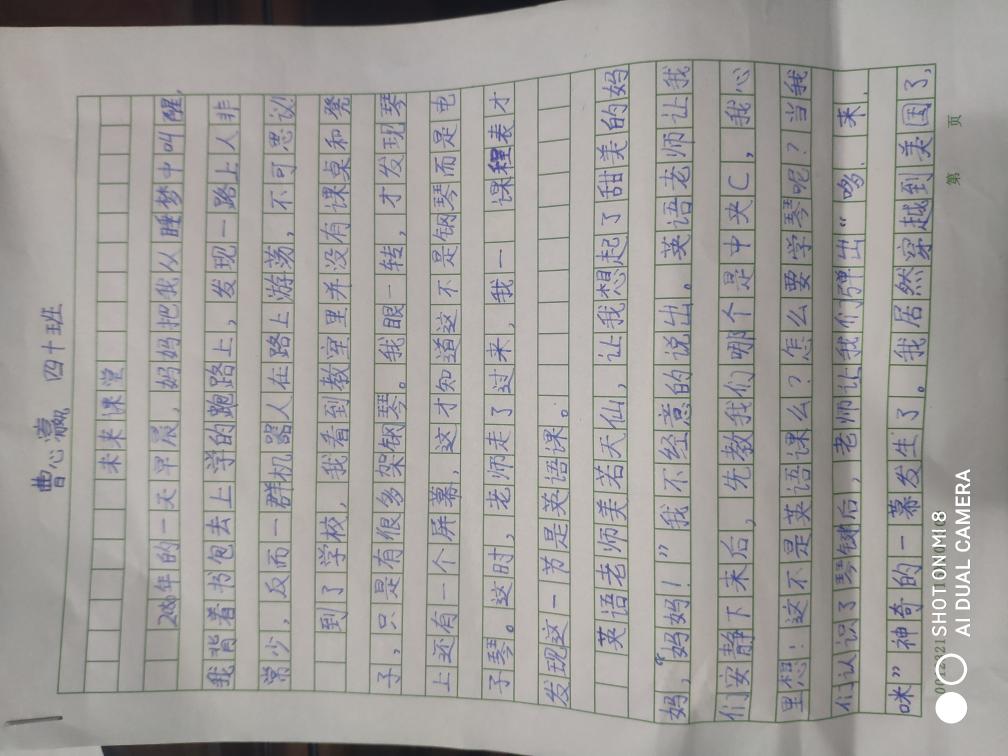 曹心瀛 四十班
未来课堂
2080年的一天早晨，妈妈把我从睡梦中叫醒，
我背着书包去上学的跑路上，发现一路上人非
常少，反而一群机器人在路上游荡，不可思议！
到了学校，我看到教室里并没有课桌和凳
子，只是有很多架钢琴。我眼一转，才发现琴
上还有一个屏幕，这才知道这不是钢琴而是电
子琴。这时，老师走了过来，我一 课程表才
发现这一节是英语课。
英语老师美若天仙，让我想起了甜美的妈
妈，“妈妈！”我不经意的说出。英语老师让我
们安静下来后，先教我们哪个是中央C，我心
里想：这不是英语课么？怎么要学琴呢？当我
们认识了琴键后，老师让我们弹出“哆.来.
咪”神奇的一幕发生了。我居然穿越到美国了，
第 页
SHOT ON MI 8
AI DUAL CAMERA